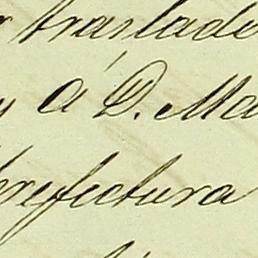 traslad
á D. Ma
prefectura